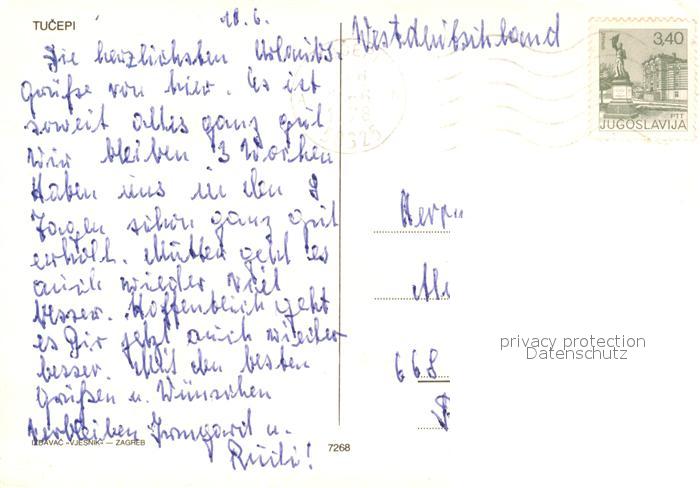 TUČEPI
18.6.
Die herzlichsten Urlaubs-
grüße von hier. Es ist
soweit alles ganz gut
Wir bleiben 3 Wochen
Haben uns in den 8
Tagen schon ganz gut
erholt. Mutter geht es
auch wieder viel
besser. Hoffentlich geht
es Dir jetzt auch wieder
besser. Mit den besten
Grüßen u. Wünschen
verbleiben Irmgard u.
Rudi!
IZDAVAČ »VJESNIK« — ZAGREB
7268
Westdeutschland
3,40
PTT
JUGOSLAVIJA
Herrn
668
privacy protection
Datenschutz